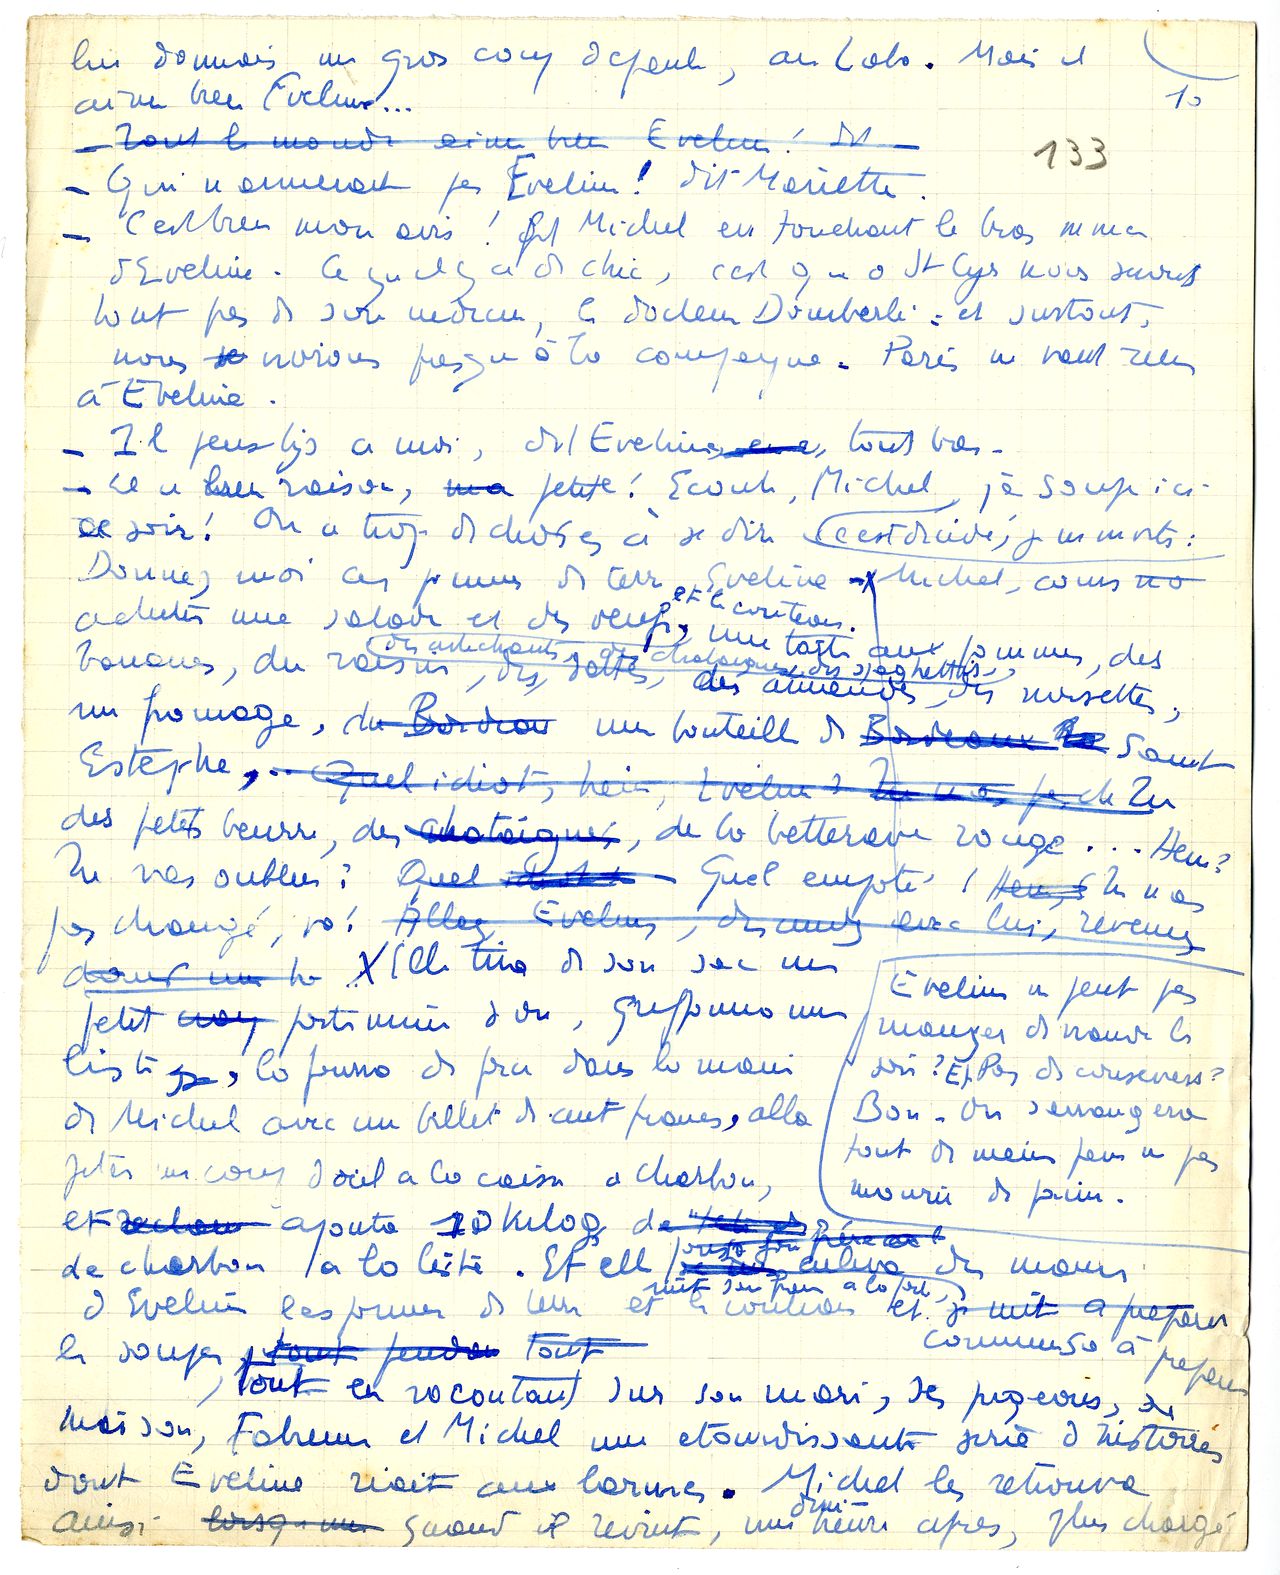 lui donnais un gros coup d'épaule, au Labo. Mais il
10
aime bien Eveline...
133
- Tout le monde aime bien Eveline ! dit -
- Qui n'aimerait pas Eveline ! dit Mariette.
- C'est bien mon avis ! fit Michel en touchant le bras
d'Eveline. Ce qu'il y a de chic, c'est qu'à St Cyr nous serons
tout près de son médecin, le docteur : et surtout,
nous serons presqu'à la campagne. Paris ne vaut rien
à Eveline.
- Il pense à moi, dit Eveline, tout bas.
- Il a bien raison, ma petite ! Ecoute, Michel, je soupe ici
ce soir ! On a trop de choses à se dire c'est décidé, je m'invite :
Donnez moi ces pommes de terre, Eveline et le couteau. Michel, cours
acheter une salade et des oeufs, une tarte aux pommes, des
bananes, du raisin, des dattes, des amandes, des noisettes,
des artichauts, des châtaignes, des spaghettis
un fromage, du Bordeaux une bouteille de Bordeaux Saint
Estèphe, .. Quel idiot, hein, Eveline ? Tu n'as pas de
des petits beurre, des châtaignes, de la betterave rouge ... Hein ?
Tu vas oublier ? Quel idiot Quel empoté ! Hein, Tu n'as
pas changé, va ! Allez Eveline, descendez avec lui, revenez
dans une X Elle tira de son sac un
petit porte mine d'or, griffonna une
liste, la fourra de force dans la main
de Michel avec un billet de cent francs, alla
jeter un coup d'oeil à la caisse à charbon,
et ajouta 10 kilog de
de charbon à la liste. Et elle enleva des mains
poussa son frère
mit son frère à la porte,
d'Eveline les pommes de terre et le couteau et se mit à préparer
commença à préparer
le souper, tout tout
tout en racontant sur son mari, ses pigeons, sa
maison, Fabienne et Michel une étourdissante série d'histoires
dont Eveline riait aux larmes. Michel les retrouva
ainsi lorsque quand il revint, une demi heure après, plus chargé
Eveline ne peut pas
manger de viande le
soir ? Et Pas de conserves ?
Bon. On s'arrangera
tout de même pour ne pas
mourir de faim.